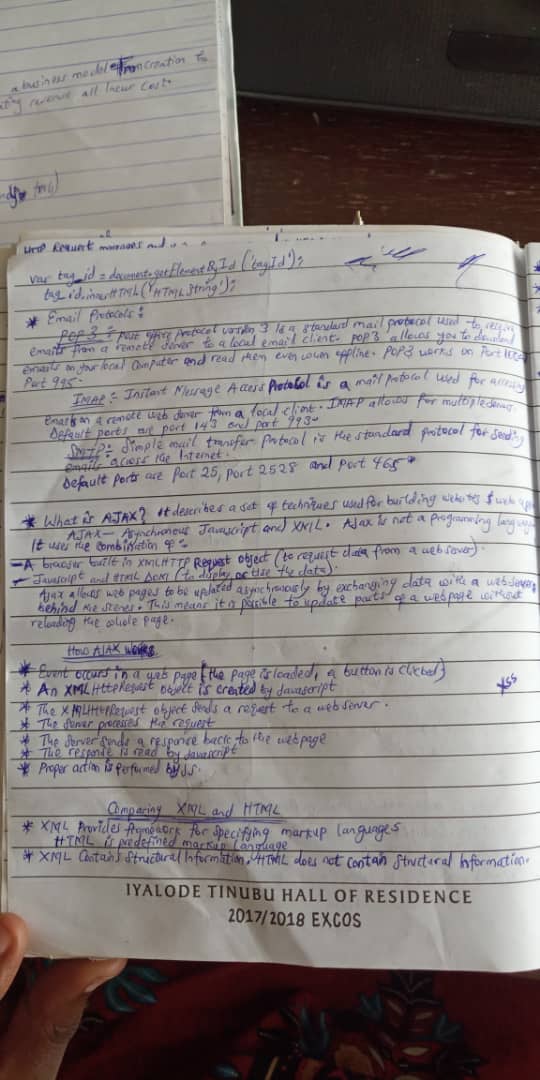 a business model from creation to
ating revenue all incur cost.
HTTP Request
var tag_id = document.getElementById ('tagId');
tag_id.innerHTML ('HTML String');
* Email Protocols:
POP3 : post office protocol version 3 is a standard mail protocol used to receive
emails from a remote server to a local email client. POP3 allows you to download
emails on your local computer and read them even when offline. POP3 works on Port
Port 995.
IMAP : Instant Message Access Protocol is a mail protocol used for accessing
emails on a remote web server from a local client. IMAP allows for multiple
Default ports are port 143 and port 993.
SMTP : Simple mail transfer Protocol is the standard protocol for sending
emails across the Internet.
Default ports are Port 25, port 2528 and port 465
* What is AJAX? It describes a set of techniques used for building websites & web
AJAX — Asynchronous Javascript and XML. Ajax is not a programming language
It uses the combination of :
- A browser built in XMLHTTP Request object (to request data from a web server).
- Javascript and HTML DOM (to display or use the data).
Ajax allows web pages to be updated asynchronously by exchanging data with a web server
behind the scenes. This means it is possible to update parts of a web page without
reloading the whole page.
How AJAX works.
* Event occurs in a web page (the page is loaded, a button is clicked)
* An XMLHttpRequest object is created by Javascript
* The XMLHttpRequest object sends a request to a web server.
* The server processes the request
* The Server sends a response back to the web page
* The response is read by Javascript
* Proper action is performed by JS.
Comparing XML and HTML
* XML Provides framework for specifying markup languages
HTML is predefined markup language
* XML Contains Structural Information. HTML does not contain Structural Information.
IYALODE TINUBU HALL OF RESIDENCE
2017/2018 EXCOS